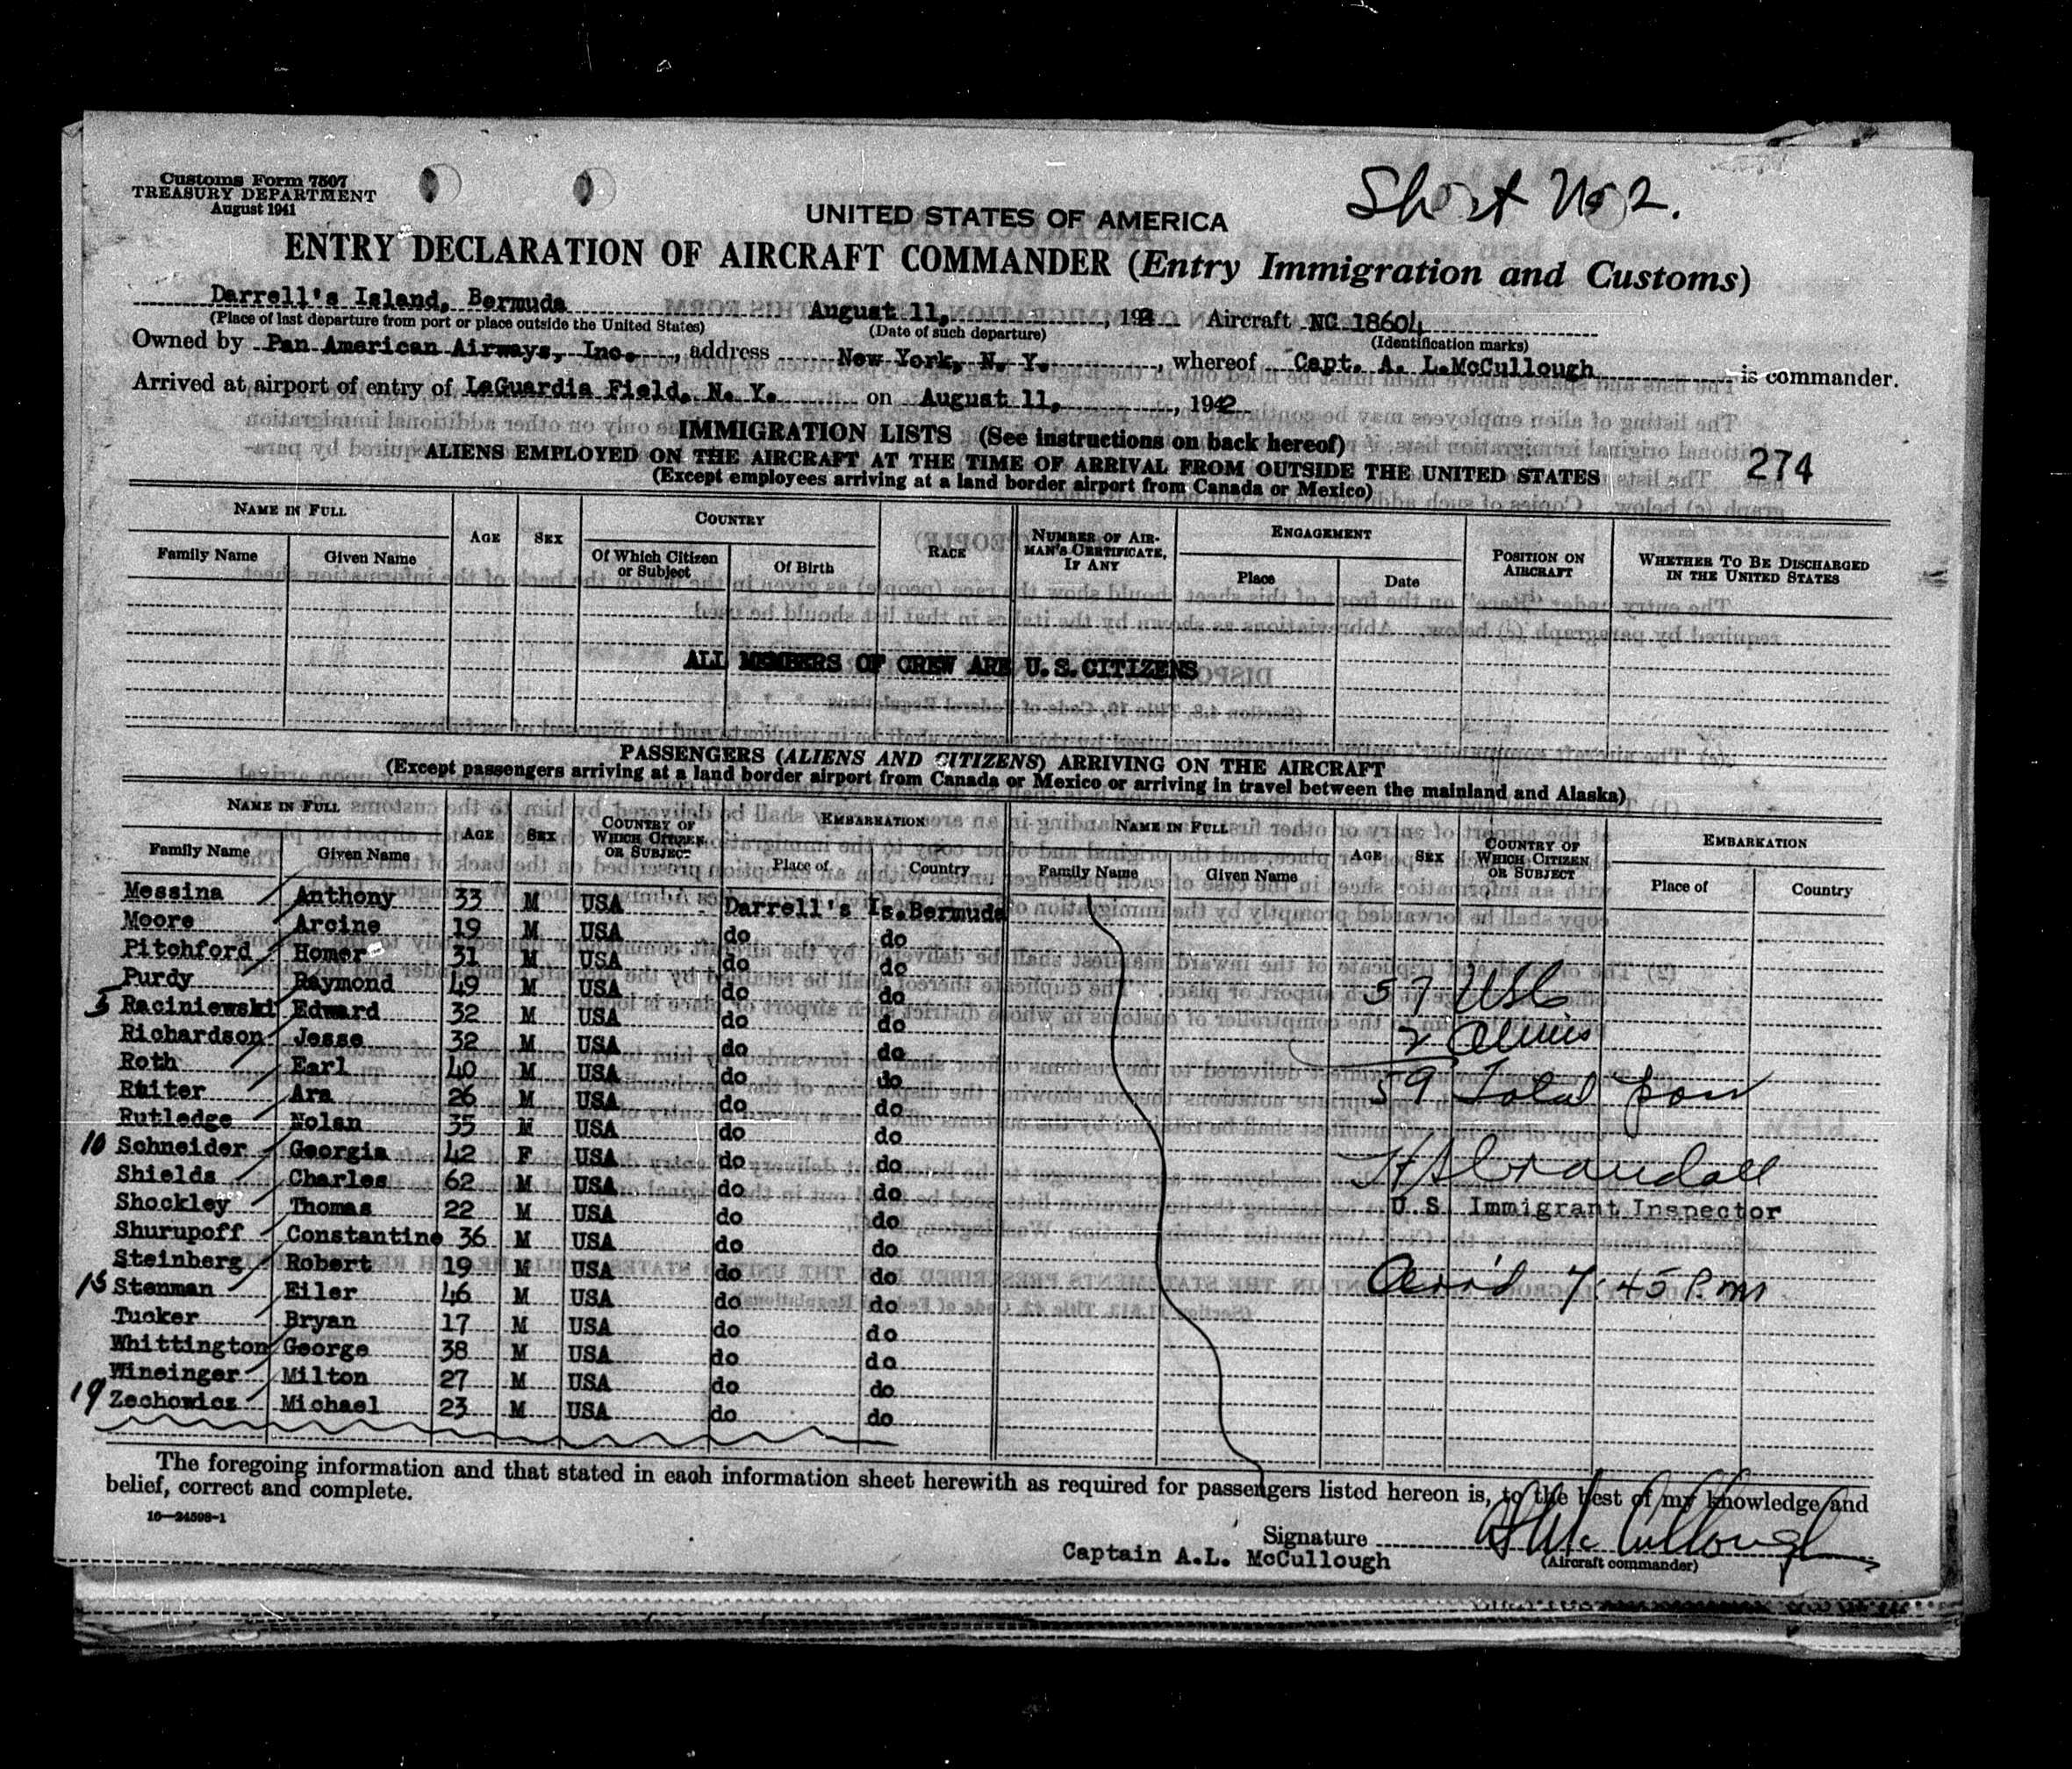 Customs Form 7507
TREASURY DEPARTMENT
August 1941
Sheet No 2.
UNITED STATES OF AMERICA
ENTRY DECLARATION OF AIRCRAFT COMMANDER (Entry Immigration and Customs)
Darrell's Island, Bermuda August 11, 1942 Aircraft NC 18604
(Place of last departure from port or place outside the United States) (Date of such departure) (Identification marks)
Owned by Pan American Airways, Inc., address New York, N. Y., whereof Capt. A. L.McCullough is commander.
Arrived at airport of entry of LaGuardia Field, N. Y. on August 11, 1942
IMMIGRATION LISTS (See instructions on back hereof)
ALIENS EMPLOYED ON THE AIRCRAFT AT THE TIME OF ARRIVAL FROM OUTSIDE THE UNITED STATES
274
(Except employees arriving at a land border airport from Canada or Mexico)
NAME IN FULL AGE SEX COUNTRY RACE NUMBER OF AIRMAN'S CERTIFICATE, IF ANY ENGAGEMENT POSITION ON AIRCRAFT WHETHER TO BE DISCHARGED IN THE UNITED STATES
Family Name Given Name Of Which Citizen or Subject Of Birth Place Date
ALL MEMBERS OF CREW ARE U.S.CITIZENS
PASSENGERS (ALIENS AND CITIZENS) ARRIVING ON THE AIRCRAFT
(Except passengers arriving at a land border airport from Canada or Mexico or arriving in travel between the mainland and Alaska)
NAME IN FULL AGE SEX COUNTRY OF WHICH CITIZEN OR SUBJECT EMBARKATION NAME IN FULL AGE SEX COUNTRY OF WHICH CITIZEN OR SUBJECT EMBARKATION
Family Name Given Name Place of Country Family Name Given Name Place of Country
Messina Anthony 33 M USA Darrell's Is.Bermuda
Moore Arcine 19 M USA do do
Pitchford Homer 31 M USA do do
Purdy Raymond 49 M USA do do
5 Raciniewski Edward 32 M USA do do
Richardson Jesse 32 M USA do do
Roth Earl 40 M USA do do
Ruiter Ara 26 M USA do do
Rutledge Nolan 35 M USA do do
10 Schneider Georgia 42 F USA do do
Shields Charles 62 M USA do do
Shockley Thomas 22 M USA do do
Shurupoff Constantine 36 M USA do do
Steinberg Robert 19 M USA do do
15 Stenman Eiler 46 M USA do do
Tucker Bryan 17 M USA do do
Whittington George 38 M USA do do
Wineinger Milton 27 M USA do do
19 Zechowicz Michael 23 M USA do do
57 USC
2 Aliens
59 Total
U.S. Immigrant Inspector
Arr'd 7:45 P.m
The foregoing information and that stated in each information sheet herewith as required for passengers listed hereon is, to the best of my knowledge and
belief, correct and complete.
16—24598-1
Signature A L McCullough
Captain A.L. McCullough (Aircraft commander)